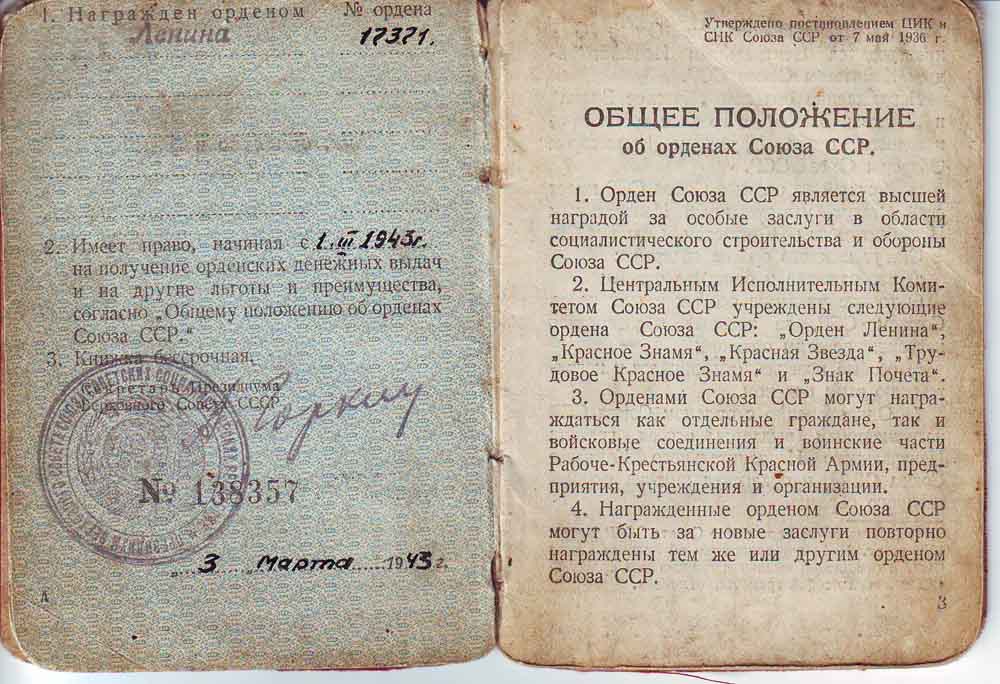 1. Награжден орденом № ордена
Ленина 12321.
2. Имеет право, начиная с 1. III 1943г.
на получение орденских денежных выдач
и на другие льготы и преимущества,
согласно „Общему положению об орденах
Союза ССР.“
3. Книжка бессрочная.
Секретарь Президиума
Верховного Совета СССР
Горкин
№ 138357
„ 3 „ Марта 1943 г.
Утверждено постановлением ЦИК и
СНК Союза ССР от 7 май 1936 г.
ОБЩЕЕ ПОЛОЖЕНИЕ
об орденах Союза ССР.
1. Орден Союза ССР является высшей
наградой за особые заслуги в области
социалистического строительства и обороны
Союза ССР.
2. Центральным Исполнительным Коми-
тетом Союза ССР учреждены следующие
ордена Союза ССР: „Орден Ленина“,
„Красное Знамя“, „Красная Звезда“, „Тру-
довое Красное Знамя“ и „Знак Почета“.
3. Орденами Союза ССР могут награ-
ждаться как отдельные граждане, так и
войсковые соединения и воинские части
Рабоче-Крестьянской Красной Армии, пред-
приятия, учреждения и организации.
4. Награжденные орденом Союза ССР
могут быть за новые заслуги повторно
награждены тем же или другим орденом
Союза ССР.
3